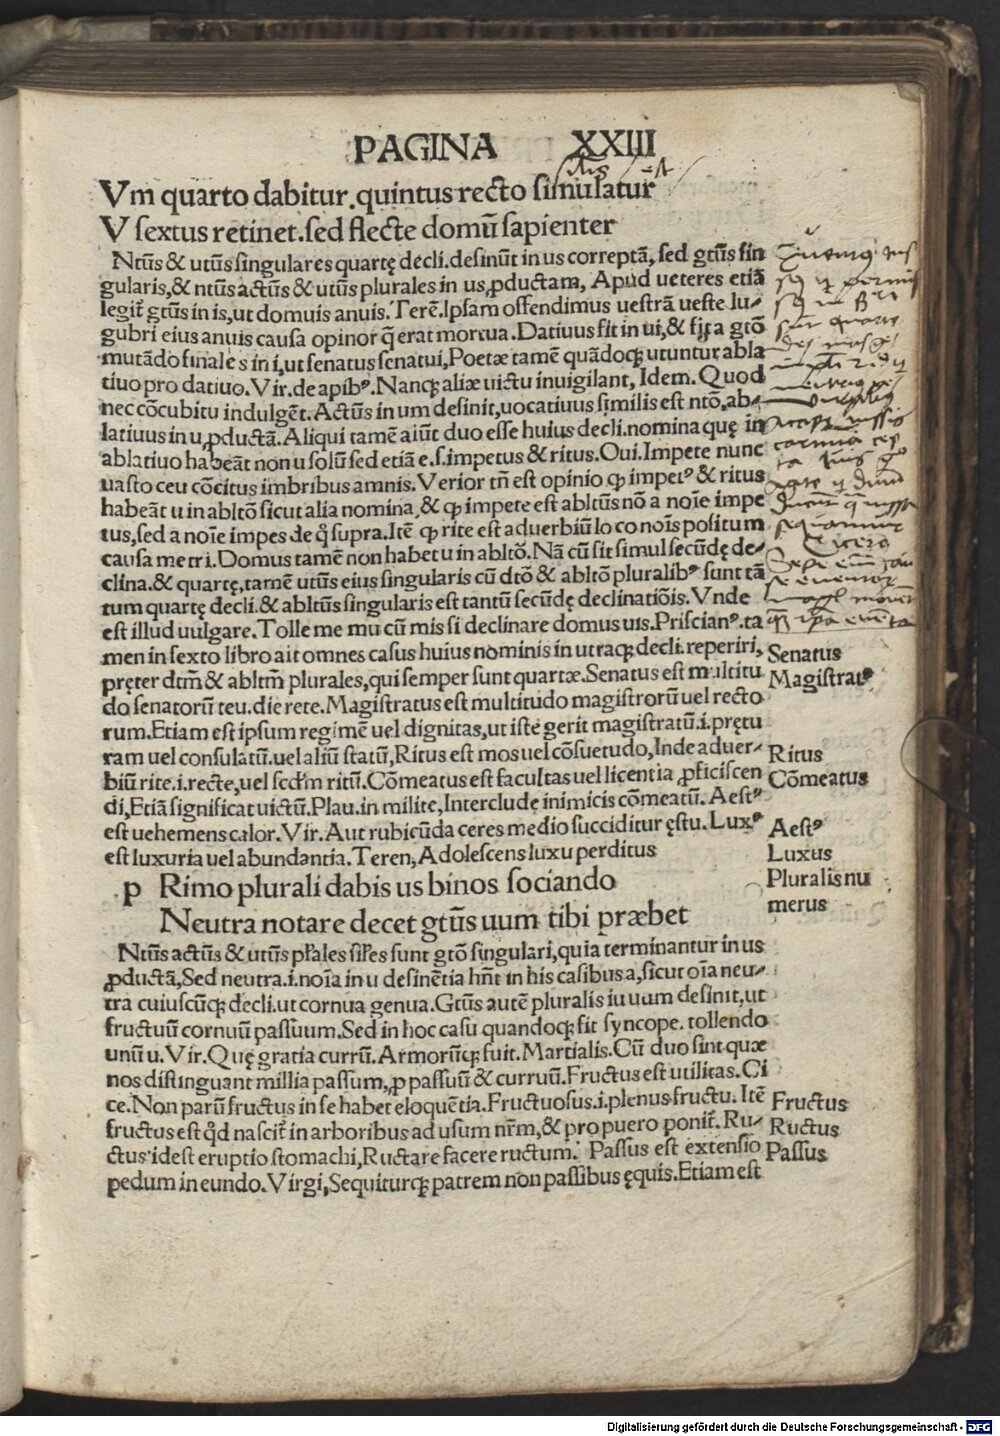 PAGINA XXIII
Vm quarto dabitur.quintus recto simulatur̄
V sextus retinet.sed flecte domū sapienter
Ntūs & utūs singulares quartę decli.desinūt in us correptā, sed gtūs sin
gularis,& ntūs actūs & utūs plurales in us ꝓductam, Apud ueteres etiā
legit̄ gtūs in is,ut domuis anuis.Terē.Ipsam offendimus uestrā ueste lu-
gubri eius anuis causa opinor q̄ erat mortua.Datiuus fit in ui,& fit a gtō
mutādo finale s in i,ut senatus senatui,Poetæ tamē quādoqꝫ utuntur abla
tiuo pro datiuo.Vir.de apibꝰ.Nanqꝫ aliæ uictu inuigilant, Idem.Quod
nec cōcubitu indulgēt.Actūs in um desinit,uocatiuus similis est ntō.ab-
latiuus in u ꝓductā.Aliqui tamē aiūt duo esse huius decli.nomina quę in
ablatiuo habeāt non u solū sed etiā e.s.impetus & ritus.Oui.Impete nunc
uasto ceu cōcitus imbribus amnis.Verior tn̄ est opinio ꝙ impetꝰ & ritus
habeāt u in abltō sicut alia nomina,& ꝙ impete est abltūs nō a noīe impe
tus,sed a noīe impes de q̄ supra.Itē ꝙ rite est aduerbiū loco noīs positum
causa metri.Domus tamē non habet u in abltō.Nā cū sit simul secūdę de-
clina.& quartę,tamē utūs eius singularis cū dtō & abltō pluralibꝰ sunt tā
tum quartę decli.& abltūs singularis est tantū secūdę declinatiōis.Vnde
est illud uulgare.Tolle me mu cū mis si declinare domus uis.Priscianꝰ.ta
men in sexto libro ait omnes casus huius nominis in utraqꝫ decli.reperiri,
pręter dtm̄ & abltm̄ plurales,qui semper sunt quartæ.Senatus est multitu
do senatorū seu.die rete.Magistratus est multitudo magistrorū uel recto
rum.Etiam est ipsum regimē uel dignitas,ut iste gerit magistratū.i.prętu
ram uel consulatū.uel aliū statū,Ritus est mos uel cōsuetudo,Inde aduer-
biū rite.i.recte,uel scd'm ritū.Cōmeatus est facultas uel licentia ꝓficiscen
di,Etiā significat uictū.Plau.in milite,Interclude inimicis cōmeatū.Aestꝰ
est uehemens calor.Vir.Aut rubicūda ceres medio succiditur ęstu.Luxꝰ
est luxuria uel abundantia.Teren,Adolescens luxu perditus
p Rimo plurali dabis us binos sociando
Neutra notare decet gtūs uum tibi præbet
Ntūs actūs & utūs pl'ales sil'es sunt gtō singulari,quia terminantur in us
ꝓductā,Sed neutra.i.noīa in u desinētia hn̄t in his casibus a,sicut oīa neu-
tra cuiuscūqꝫ decli.ut cornua genua.Gtūs autē pluralis iu uum desinit,ut
fructuū cornuū passuum.Sed in hoc casu quandoqꝫ fit syncope.tollendo
unū u.Vir.Quę gratia currū.Armorūqꝫ fuit.Martialis.Cū duo sint quæ
nos distinguant millia passum,ꝓ passuū & curruū.Fructus est utilitas.Ci
ce.Non parū fructus in se habet eloquētia.Fructuosus.i.plenus fructu.Itē
fructus est q̄d nascit̄ in arboribus ad usum nr̄m,& pro puero ponit̄.Ru-
ctus idest eruptio stomachi,Ructare facere ructum. Passus est extensio
pedum in eundo.Virgi,Sequiturqꝫ patrem non passibus ęquis.Etiam est
Cicero
Senatus
Magistratꝰ
Ritus
Cōmeatus
Aestꝰ
Luxus
Pluralis nu
merus
Fructus
Ructus
Passus
Digitalisierung gefördert durch die Deutsche Forschungsgemeinschaft - DFG